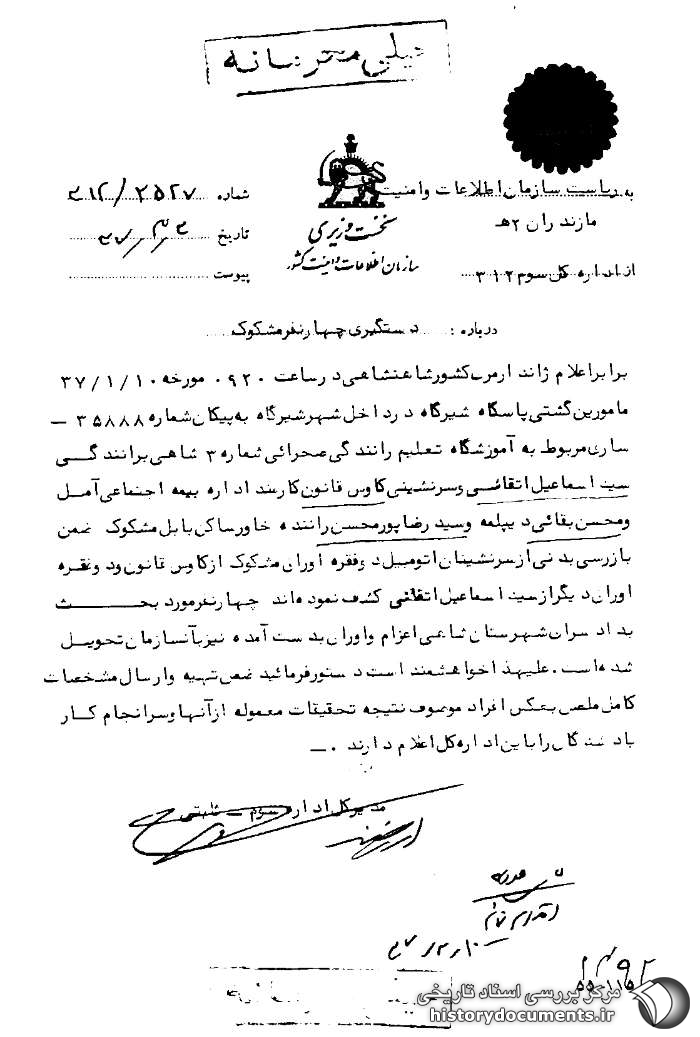 خیلی محرمانه
به ریاست سازمان اطلاعات و امنیت
مازندران ۲هـ
از اداره کل سوم ۳۱۲
نخست وزیری
سازمان اطلاعات و امنیت کشور
شماره ۳۱۲/۲۵۲۷
تاریخ
پیوست
درباره : دستگیری چهار نفر مشکوک
برابر اعلام ژاندارمری کشور شاهنشاهی در ساعت ۰۹۲۰ مورخه ۳۷/۱/۱۰
مامورین گشتی پاسگاه شیرگاه در داخل شهر شیرگاه به پیکان شماره ۳۵۸۸۸ –
ساری مربوط به آموزشگاه تعلیم رانندگی صحرائی شماره ۳ شاهی برانندگی
سید اسماعیل اتقائی و سرنشینی کاوس قانون کارمند اداره بیمه اجتماعی آمل
و محسن بقائی دیپلمه وسید رضا پورمحسن راننده خاور ساکن بابل مشکوک ضمن
بازرسی بدنی از سرنشینان اتومبیل دو فقره اوراق مشکوک از کاوس قانون و دو فقره
اوراق دیگر از سید اسماعیل اتقائی کشف نموده اند چهار نفر مورد بحث
بدادسرای شهرستان شاهی اعزام و اوراق بدست آمده نیز بآنسازمان تحویل
شده است. علیهذا خواهشمند است دستور فرمائید ضمن تهیه و ارسال مشخصات
کامل ملصق بعکس افراد موصوف نتیجه تحقیقات معموله از آنها و سرانجام کار
یاد شدگان را باین اداره کل اعلام دارند . –
مدیر کل اداره سوم – ثابتی
مرکز بررسی اسناد تاریخی
historydocuments.ir